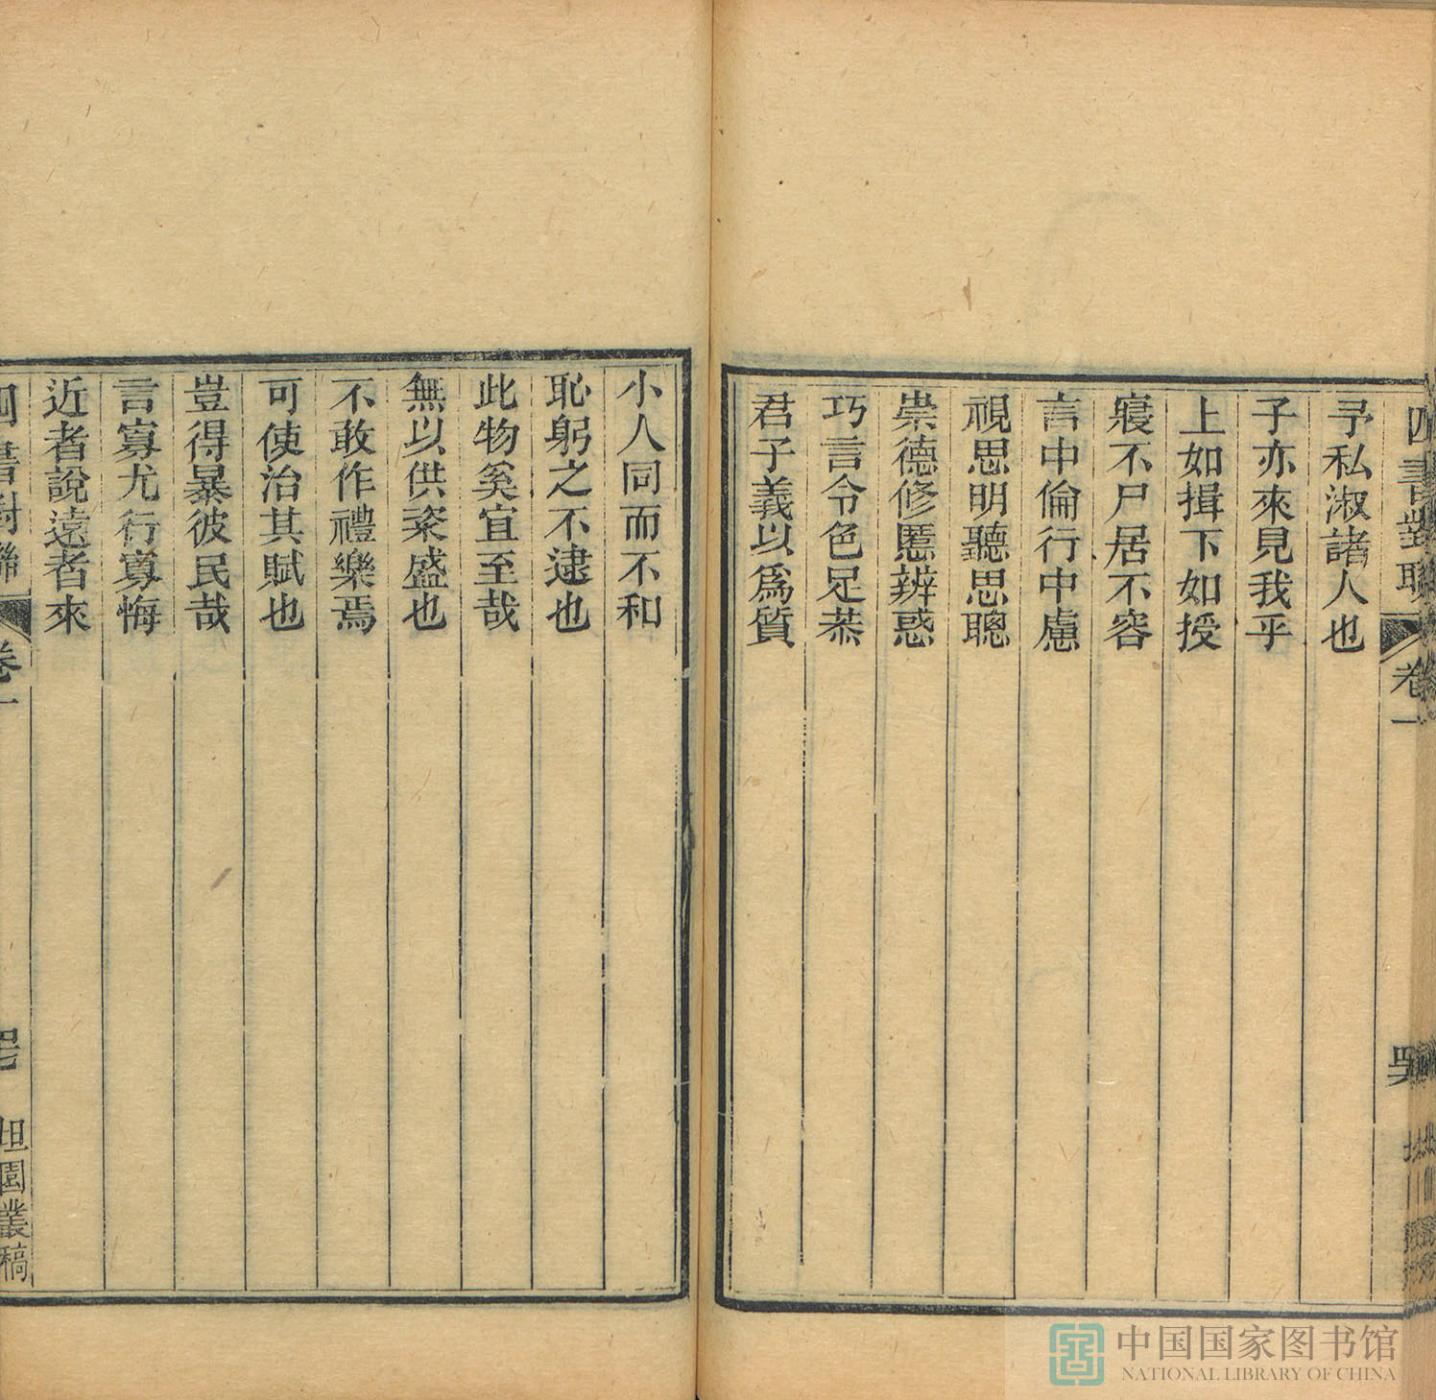 四書對聯 卷一
予私淑諸人也
子亦來見我乎
上如揖下如授
寢不尸居不容
言中倫行中慮
視思明聽思聰
崇德修慝辨惑
巧言令色足恭
君子義以爲質
小人同而不和
恥躬之不逮也
此物奚宜至哉
無以供粢盛也
不敢作禮樂焉
可使治其賦也
豈得暴彼民哉
言寡尤行寡悔
近者說遠者來
四書對聯 卷一 坦園叢稿
中国国家图书馆
NATIONAL LIBRARY OF CHINA